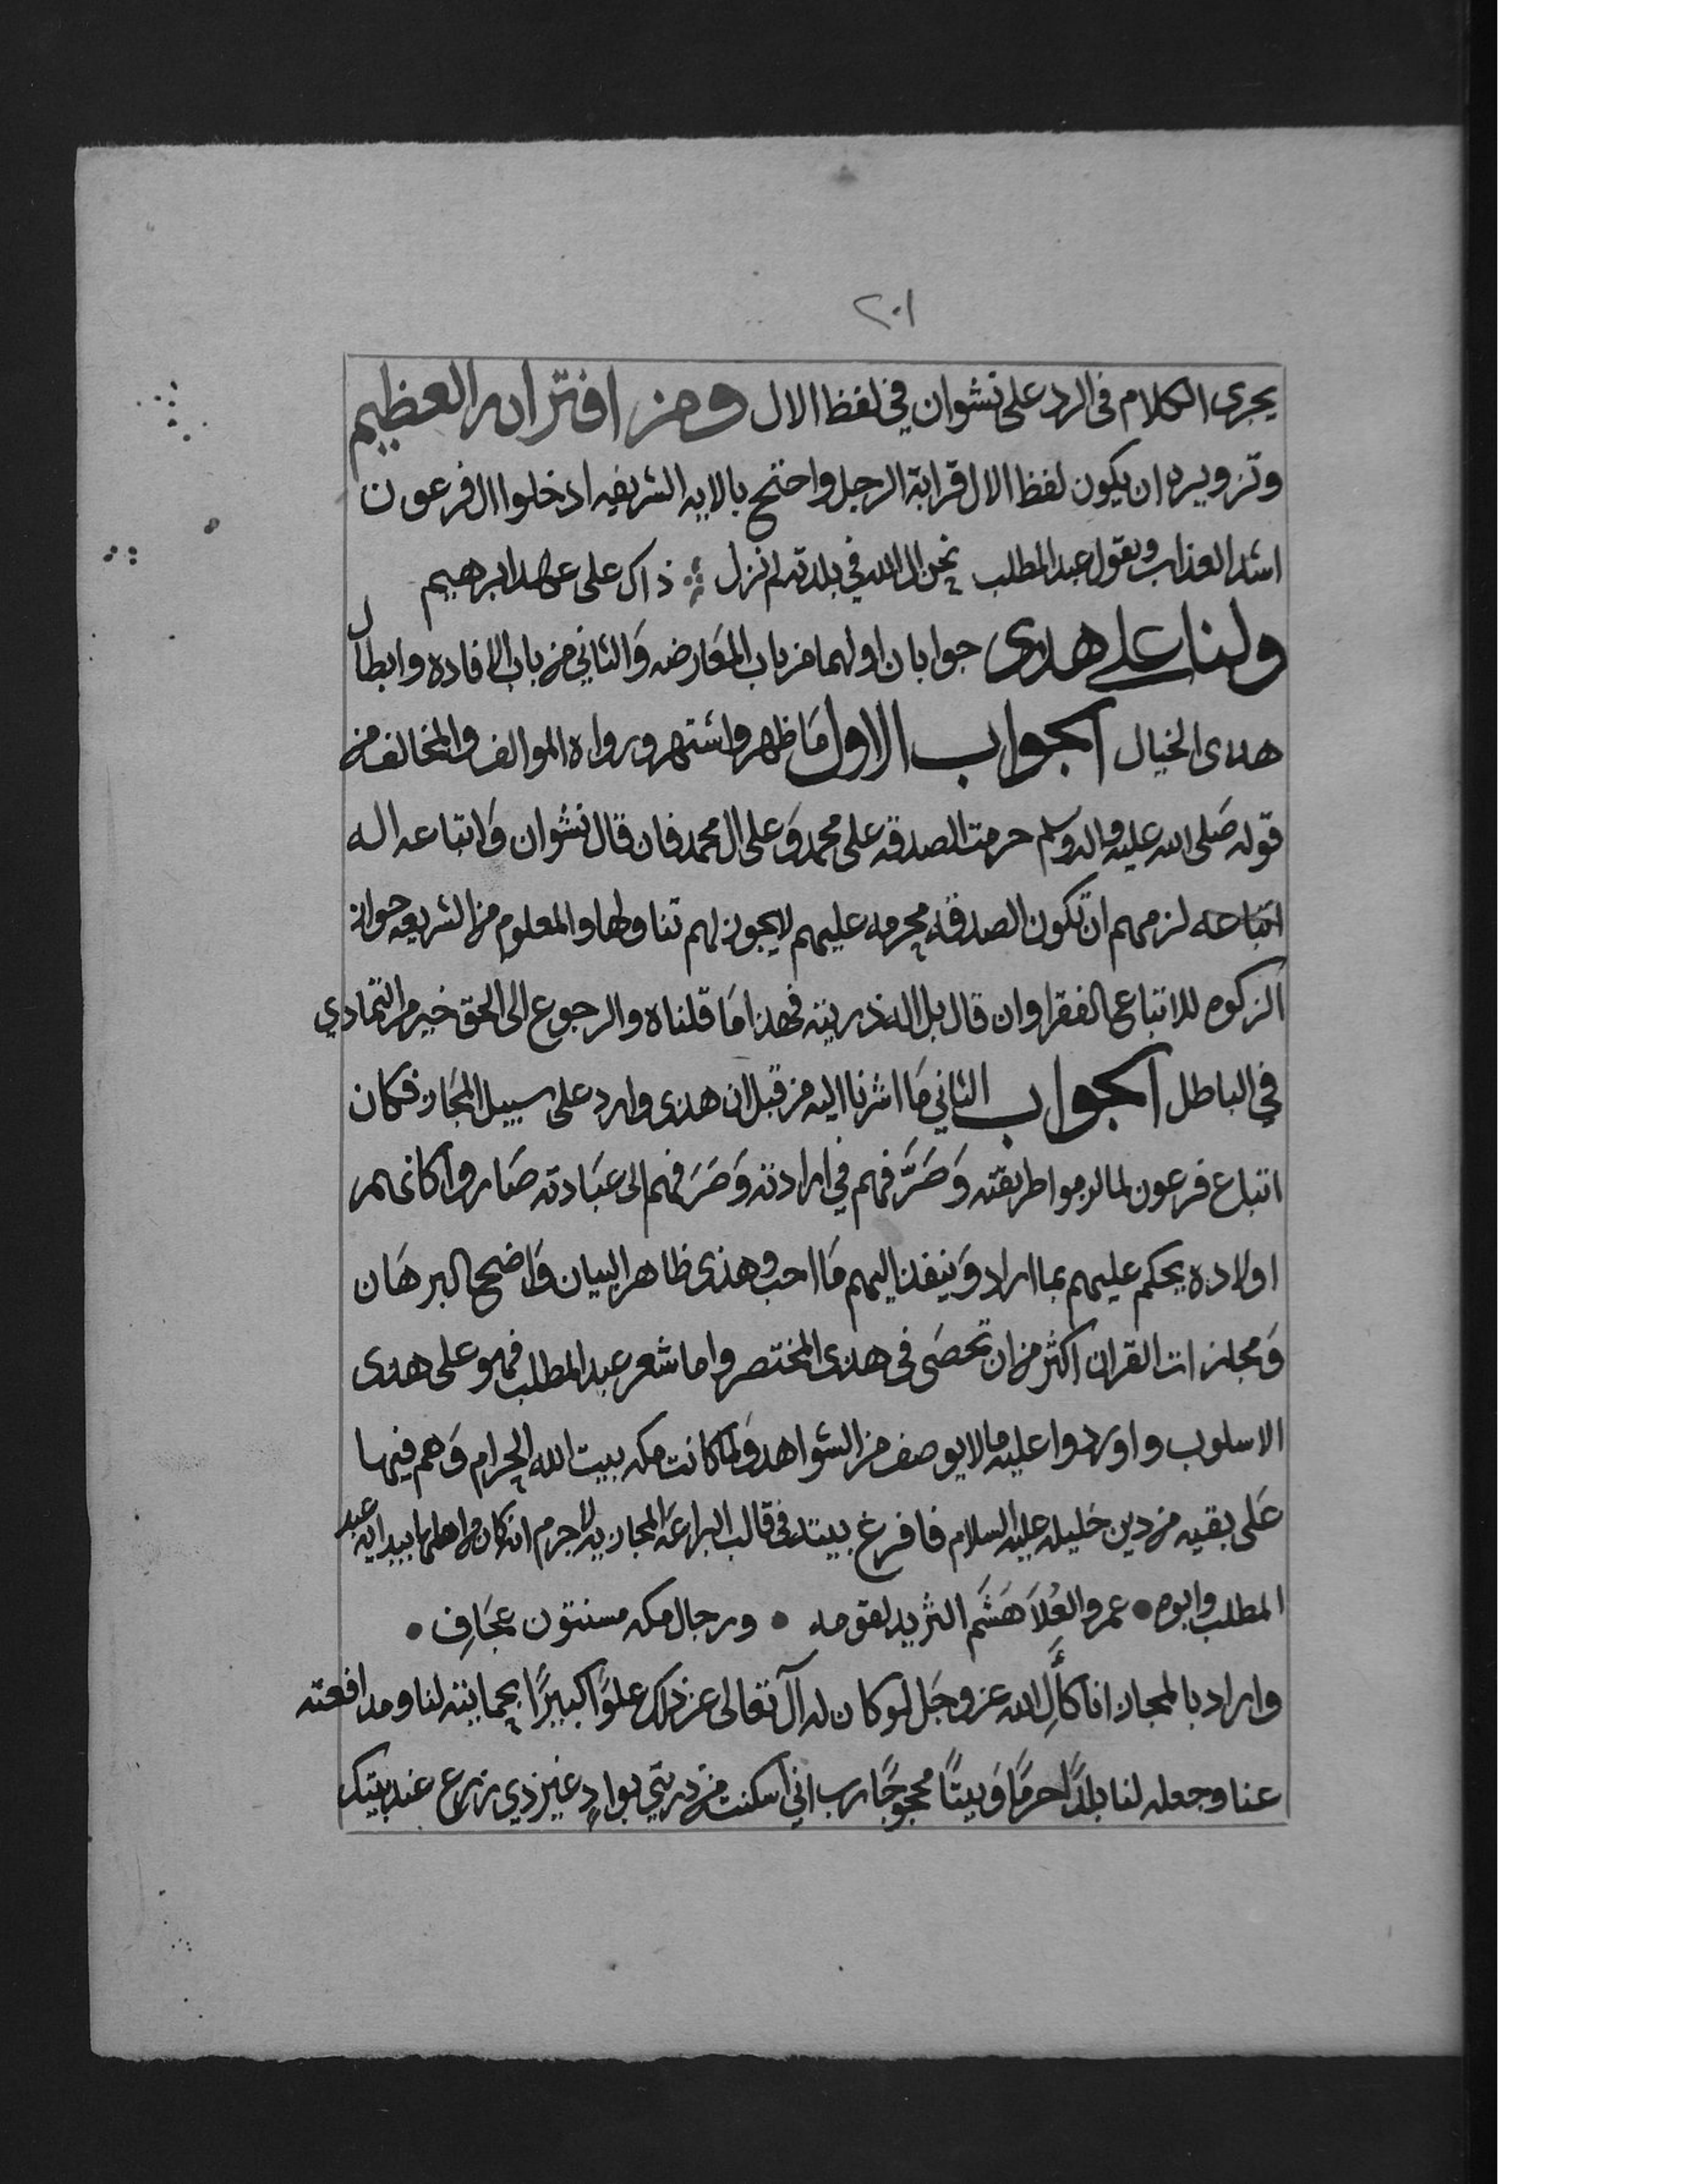 ٢٠١
يجرى الكلام فى الرد على نشوان في لفظ الال ومن افترائه العظيم
وتزويره ان يكون لفظ الال قرابة الرجل واحتج بالايه الشريفه ادخلوا ال فرعون
اشد العذاب وبقول عبد المطلب نحن ال الله في بلدته لم نزل ذاك على عهد ابرهيم
ولنا على هذى جوابان اولهما من باب المعارضه وَالثاني من باب الافاده وابطال
هذى الخيال الجواب الاول مَا ظهر واشتهر ورواه الموالف والمخالف من
قوله صَلى الله عليه واله وسلم حرمت الصدقه على محمد وَعلى ال محمد فان قال نشوان وَاتباعه اله
اتباعه لزمهم ان تكون الصدقه محرمه عليهم لايجوز لهم تناولها والمعلوم من الشريعه جواز
الزكوه للاتباع الفقرا وان قال بل اله ذريته فهذا مَا قلناه والرجوع الى الحق خير من التمادي
في الباطل الجواب الثاني مَا اشرنا اليه من قبل ان هذى وارد على سبيل المجَاز فكان
اتباع فرعون لما لزموا طريقته وَصَرَّفهم في ارادته وَصَرَفهم الى عبَادته صَاروا كانهم
اولاده يحكم عليهم بما اراد وَينفذ اليهم مَا احب وهذى ظاهر البيان وَاضح البرهَان
وَمجازات القران اكثر من ان تحصَى فى هذى المختصر واما شعر عبد المطلب فهو على هذى
الاسلوب واوردوا عليه مالايوصف من الشواهد وَلما كانت مكه بيت الله الحرام وَهم فيها
عَلى بقيه من دين خليله عليه السلام فافرغ بيته فى قالب البراعَه المجازيه لاجرم انه كان من اهلها بيد ابيه عبد
المطلب وابوه • عمرو العُلاَ هَشَم الثريد لقومه • ورجال مكه مسنتون عجَافِ •
واراد بالمجاز انا كآلِ الله عز وجَل لو كان له آل تعالى عن ذلك علوًا كبيرًا بحمايته لنا ومدافعته
عنا وجعله لنا بلدًا حرمًا وَبيتًا محجوجًا رب اني اسكنت من ذريتي بوادٍ غير ذي زرع عند بيتك